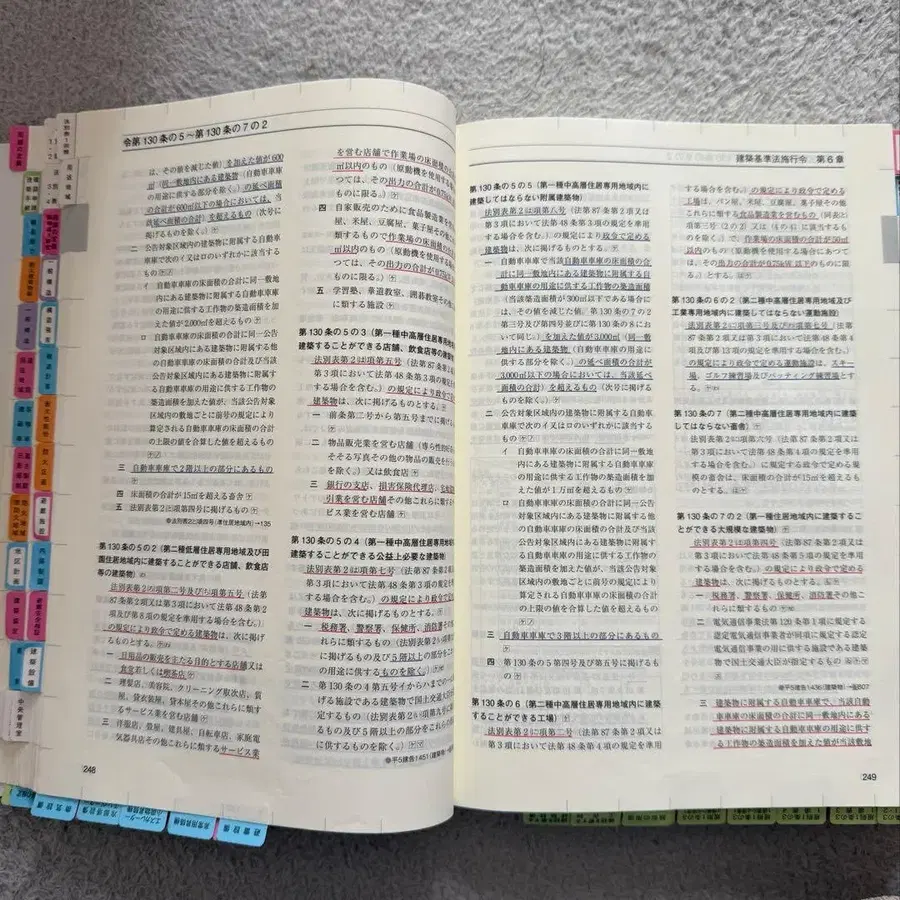 令第130条の5〜第130条の7の2
は、その値を減じた値)を加えた値が600
㎡(同一敷地内にある建築物(自動車車庫
の用途に供する部分を除く。)の延べ面積
の合計が600㎡以下の場合においては、当
該延べ面積の合計)を超えるもの(次号に
掲げるものを除く。)
二 公告対象区域内の建築物に附属する自動車
車庫で次のイ又はロのいずれかに該当する
もの
イ 自動車車庫の床面積の合計に同一敷地
内にある建築物に附属する自動車車庫
の用途に供する工作物の築造面積を加
えた値が2,000㎡を超えるもの
ロ 自動車車庫の床面積の合計に同一公告
対象区域内にある建築物に附属する他
の自動車車庫の床面積の合計及び当該
公告対象区域内にある建築物に附属す
る自動車車庫の用途に供する工作物の
築造面積を加えた値が、当該公告対象
区域内の敷地ごとに前号の規定により
算定される自動車車庫の床面積の合計
の上限の値を合算した値を超えるもの
三 自動車車庫で2階以上の部分にあるもの
四 床面積の合計が15㎡を超える畜舎
五 法別表第2(は)項第四号に掲げるもの
第130条の5の2(第二種低層住居専用地域及び田
園住居地域内に建築することができる店舗、飲食店
等の建築物)
法別表第2(ろ)項第二号及び(ち)項第五号(法第
87条第2項又は第3項において法第48条第2
項及び第8項の規定を準用する場合を含む。)
の規定により政令で定める建築物は、次に掲げ
るものとする。
一 日用品の販売を主たる目的とする店舗又は
食堂若しくは喫茶店
二 理髪店、美容院、クリーニング取次店、質
屋、貸衣装屋、貸本屋その他これらに類す
るサービス業を営む店舗
三 洋服店、畳屋、建具屋、自転車店、家庭電
気器具店その他これらに類するサービス業
248
を営む店舗で作業場の床面積の
㎡以内のもの(原動機を使用する
つては、その出力の合計が0.75k
に限る。)
四 自家販売のために食品製造業を営
屋、米屋、豆腐屋、菓子屋その他こ
類するもので作業場の床面積の合
㎡以内のもの(原動機を使用する
つては、その出力の合計が0.75k
に限る。)
五 学習塾、華道教室、囲碁教室その
に類する施設
第130条の5の3(第一種中高層住居専用地
建築することができる店舗、飲食店等の建築物
法別表第2(は)項第五号(法第87条
3項において法第48条第3項の規定
する場合を含む。)の規定により政令で
建築物は、次に掲げるものとする。
一 前条第二号から第五号までに掲げ
二 物品販売業を営む店舗(専ら性的好
そそる写真その他の物品の販売を行
を除く。)又は飲食店
三 銀行の支店、損害保険代理店、宅地
引業を営む店舗その他これらに類
ビス業を営む店舗
第130条の5の4(第一種中高層住居専用
建築することができる公益上必要な建築物)
法別表第2(は)項第七号(法第87条
第3項において法第48条第3項の規定
する場合を含む。)の規定により政令で
建築物は、次に掲げるものとする。
一 税務署、警察署、保健所、消防署その
れらに類するもの(法別表第2
るもの及び5階以上の部分を
するものを除く。)
二 第130条の4第五号イからハまでの一
げる施設である建築物で国土交通大
定するもの(法別表第2
るもの及び5階以上の部分をこれの
するものを除く。)
平5建告1451
建築基準法施行令 第6章
第130条の5の5(第一種中高層住居専用地域内に
建築してはならない附属建築物)
法別表第2(は)項第八号(法第87条第2項又は
第3項において法第48条第3項の規定を準用
する場合を含む。)の規定により政令で定める
建築物は、次に掲げるものとする。
一 自動車車庫で当該自動車車庫の床面積の合
計に同一敷地内にある建築物に附属する自
動車車庫の用途に供する工作物の築造面積
(当該築造面積が300㎡以下である場合に
は、その値を減じた値。第130条の7の2
第三号及び第四号並びに第130条の8にお
いて同じ。)を加えた値が3,000㎡(同一敷
地内にある建築物(自動車車庫の用途に供
する部分を除く。)の延べ面積の合計が
3,000㎡以下の場合においては、当該延べ
面積の合計)を超えるもの(次号に掲げる
ものを除く。)
二 公告対象区域内の建築物に附属する自動車
車庫で次のイ又はロのいずれかに該当する
もの
イ 自動車車庫の床面積の合計に同一敷地
内にある建築物に附属する自動車車庫
の用途に供する工作物の築造面積を加
えた値が1万㎡を超えるもの
ロ 自動車車庫の床面積の合計に同一公告
対象区域内にある建築物に附属する他
の自動車車庫の床面積の合計及び当該
公告対象区域内にある建築物に附属す
る自動車車庫の用途に供する工作物の
築造面積を加えた値が、当該公告対象
区域内の敷地ごとに前号の規定により
算定される自動車車庫の床面積の合計
の上限の値を合算した値を超えるもの
三 自動車車庫で3階以上の部分にあるもの
四 第130条の5第四号及び第五号に掲げるも
の
第130条の6(第二種中高層住居専用地域内に建築
することができる工場)
法別表第2(に)項第二号(法第87条第2項又は
第3項において法第48条第4項の規定を準用
する場合を含む。)の規定により政令で定める
工場は、パン屋、米屋、豆腐屋、菓子屋その他
これらに類する食品製造業を営むもの(同表(と)
項第三号(2の2)又は(4の4)に該当するも
のを除く。)で、作業場の床面積の合計が50㎡
以内のもの(原動機を使用する場合にあつて
は、その出力の合計が0.75kW以下のものに限
る。)とする。
第130条の6の2(第二種中高層住居専用地域及び
工業専用地域内に建築してはならない運動施設)
法別表第2(に)項第三号及び(わ)項第七号(法第
87条第2項又は第3項において法第48条第4
項及び第13項の規定を準用する場合を含む。)
の規定により政令で定める運動施設は、スキー
場、ゴルフ練習場及びバッティング練習場とす
る。
第130条の7(第二種中高層住居専用地域内に建築
してはならない畜舎)
法別表第2(に)項第六号(法第87条第2項又は
第3項において法第48条第4項の規定を準用
する場合を含む。)に規定する政令で定める規
模の畜舎は、床面積の合計が15㎡を超えるも
のとする。
第130条の7の2(第一種住居地域内に建築するこ
とができる大規模な建築物)
法別表第2(ほ)項第四号(法第87条第2項又は
第3項において法第48条第5項の規定を準用
する場合を含む。)の規定により政令で定める
建築物は、次に掲げるものとする。
一 税務署、警察署、保健所、消防署その他こ
れらに類するもの
二 電気通信事業法第120条第1項に規定する
認定電気通信事業者が同項に規定する認定
電気通信事業の用に供する施設である建築
物で国土交通大臣が指定するもの
平5建告1436(建築物)→告807
三 建築物に附属する自動車車庫で、当該自動
車車庫の床面積の合計に同一敷地内にある
建築物に附属する自動車車庫の用途に供す
る工作物の築造面積を加えた値が当該敷地
249
用途地域
一般構造
構造強度
防火区画
避難施設
内装制限
地区計画
建築設備
中央管理室
エスカレーター
非常用昇降機
避雷設備